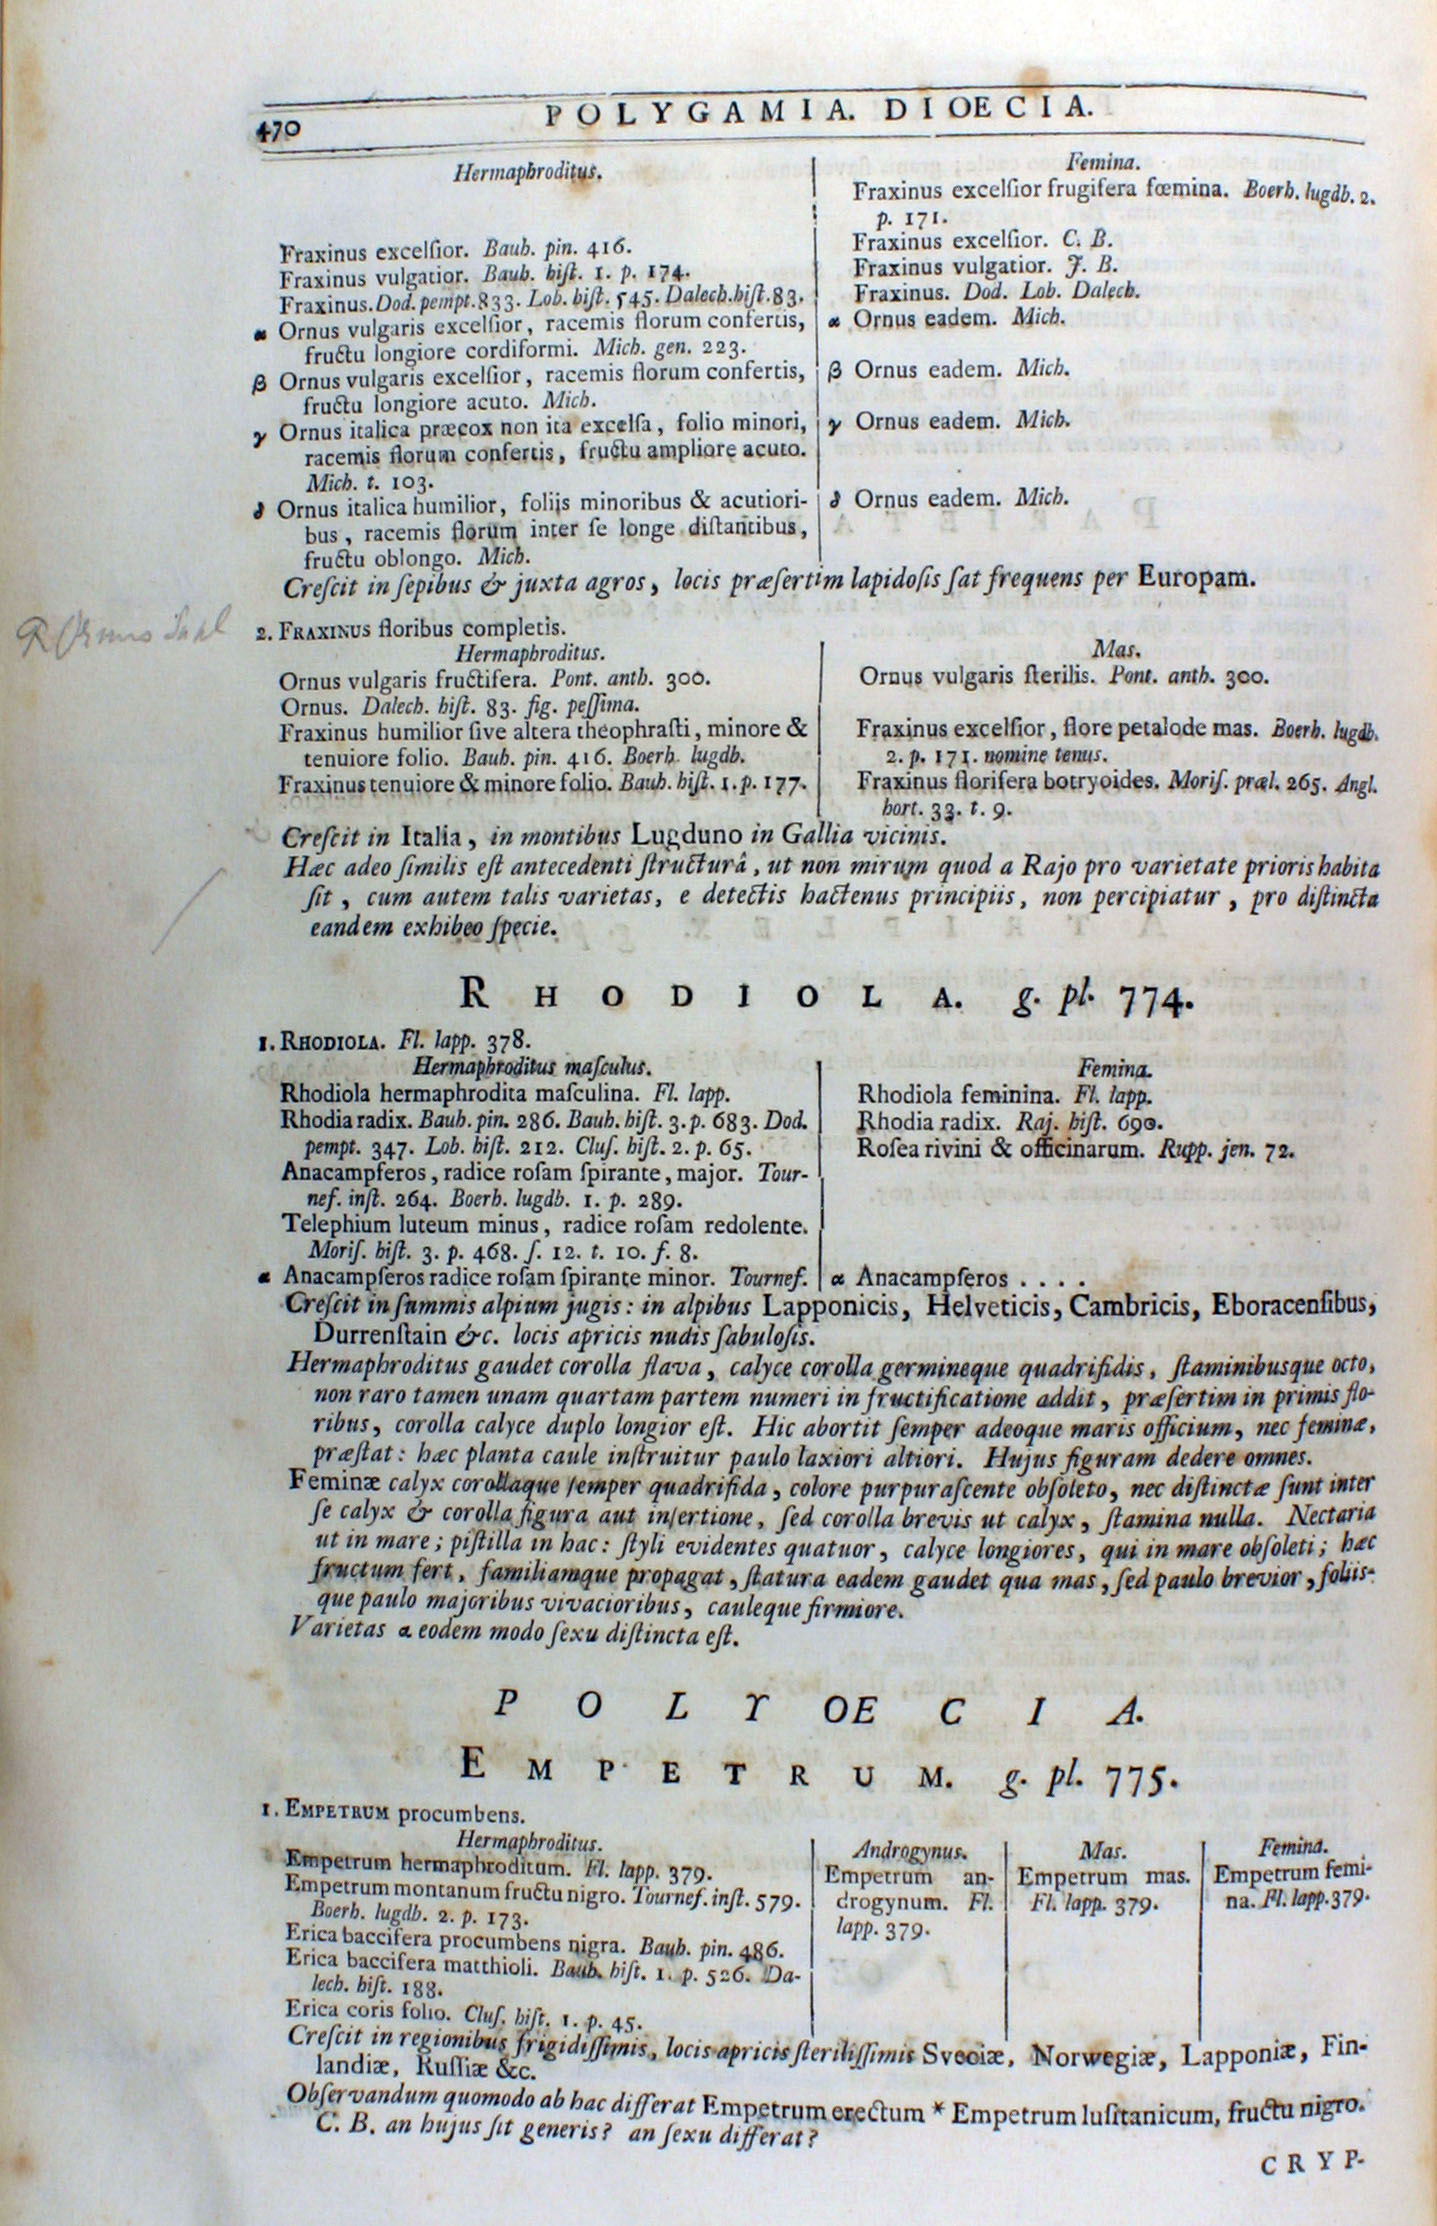 470
POLYGAMIA. DIOECIA.
Hermaphroditus.
Fraxinus excelſior. Bauh. pin. 416.
Fraxinus vulgatior. Bauh. hiſt. 1. p. 174.
Fraxinus. Dod. pempt. 833. Lob. hiſt. 545. Dalech. hiſt. 83.
α Ornus vulgaris excelſior, racemis florum confertis,
fructu longiore cordiformi. Mich. gen. 223.
β Ornus vulgaris excelſior, racemis florum confertis,
fructu longiore acuto. Mich.
γ Ornus italica præcox non ita excelſa, folio minori,
racemis florum confertis, fructu ampliore acuto.
Mich. t. 103.
δ Ornus italica humilior, foliis minoribus & acutiori-
bus, racemis florum inter ſe longe diſtantibus,
fructu oblongo. Mich.
Femina.
Fraxinus excelſior frugifera fœmina. Boerh. lugdb. 2.
p. 171.
Fraxinus excelſior. C. B.
Fraxinus vulgatior. J. B.
Fraxinus. Dod. Lob. Dalech.
α Ornus eadem. Mich.
β Ornus eadem. Mich.
γ Ornus eadem. Mich.
δ Ornus eadem. Mich.
Creſcit in ſepibus & juxta agros, locis præſertim lapidoſis ſat frequens per Europam.
2. FRAXINUS floribus completis.
Hermaphroditus.
Ornus vulgaris fructifera. Pont. anth. 300.
Ornus. Dalech. hiſt. 83. fig. peſſima.
Fraxinus humilior ſive altera theophraſti, minore &
tenuiore folio. Bauh. pin. 416. Boerh. lugdb.
Fraxinus tenuiore & minore folio. Bauh. hiſt. 1. p. 177.
Mas.
Ornus vulgaris ſterilis. Pont. anth. 300.
Fraxinus excelſior, flore petalode mas. Boerh. lugdb.
2. p. 171. nomine tenus.
Fraxinus florifera botryoides. Moriſ. præl. 265. Angl.
hort. 33. t. 9.
Creſcit in Italia, in montibus Lugduno in Gallia vicinis.
Hæc adeo ſimilis eſt antecedenti ſtructurâ, ut non mirum quod a Rajo pro varietate prioris habita
ſit, cum autem talis varietas, e detectis hactenus principiis, non percipiatur, pro diſtincta
eandem exhibeo ſpecie.
RHODIOLA. g. pl. 774.
1. RHODIOLA. Fl. lapp. 378.
Hermaphroditus maſculus.
Rhodiola hermaphrodita maſculina. Fl. lapp.
Rhodia radix. Bauh. pin. 286. Bauh. hiſt. 3. p. 683. Dod.
pempt. 347. Lob. hiſt. 212. Cluſ. hiſt. 2. p. 65.
Anacampſeros, radice roſam ſpirante, major. Tour-
nef. inſt. 264. Boerh. lugdb. 1. p. 289.
Telephium luteum minus, radice roſam redolente.
Moriſ. hiſt. 3. p. 468. ſ. 12. t. 10. f. 8.
α Anacampſeros radice roſam ſpirante minor. Tournef.
Femina.
Rhodiola feminina. Fl. lapp.
Rhodia radix. Raj. hiſt. 690.
Roſea rivini & officinarum. Rupp. jen. 72.
α Anacampſeros . . . .
Creſcit in ſummis alpium jugis: in alpibus Lapponicis, Helveticis, Cambricis, Eboracenſibus,
Durrenſtain &c. locis apricis nudis ſabuloſis.
Hermaphroditus gaudet corolla flava, calyce corolla germineque quadrifidis, ſtaminibusque octo,
non raro tamen unam quartam partem numeri in fructificatione addit, præſertim in primis flo-
ribus, corolla calyce duplo longior eſt. Hic abortit ſemper adeoque maris officium, nec feminæ,
præſtat: hæc planta caule inſtruitur paulo laxiori altiori. Hujus figuram dedere omnes.
Feminæ calyx corollaque ſemper quadrifida, colore purpuraſcente obſoleto, nec diſtinctæ ſunt inter
ſe calyx & corolla figura aut inſertione, ſed corolla brevis ut calyx, ſtamina nulla. Nectaria
ut in mare; piſtilla in hac: ſtyli evidentes quatuor, calyce longiores, qui in mare obſoleti; hæc
fructum fert, familiamque propagat, ſtatura eadem gaudet qua mas, ſed paulo brevior, foliis-
que paulo majoribus vivacioribus, cauleque firmiore.
Varietas α eodem modo ſexu diſtincta eſt.
POLYOECIA.
EMPETRUM. g. pl. 775.
1. EMPETRUM procumbens.
Hermaphroditus.
Empetrum hermaphroditum. Fl. lapp. 379.
Empetrum montanum fructu nigro. Tournef. inſt. 579.
Boerh. lugdb. 2. p. 173.
Erica baccifera procumbens nigra. Bauh. pin. 486.
Erica baccifera matthioli. Bauh. hiſt. 1. p. 526. Da-
lech. hiſt. 188.
Erica coris folio. Cluſ. hiſt. 1. p. 45.
Androgynus.
Empetrum an-
drogynum. Fl.
lapp. 379.
Mas.
Empetrum mas.
Fl. lapp. 379.
Femina.
Empetrum femi-
na. Fl. lapp. 379.
Creſcit in regionibus frigidiſſimis, locis apricis ſteriliſſimis Sveciæ, Norwegiæ, Lapponiæ, Fin-
landiæ, Ruſſiæ &c.
Obſervandum quomodo ab hac differat Empetrum erectum * Empetrum luſitanicum, fructu nigro.
C. B. an hujus ſit generis? an ſexu differat?
CRYP-